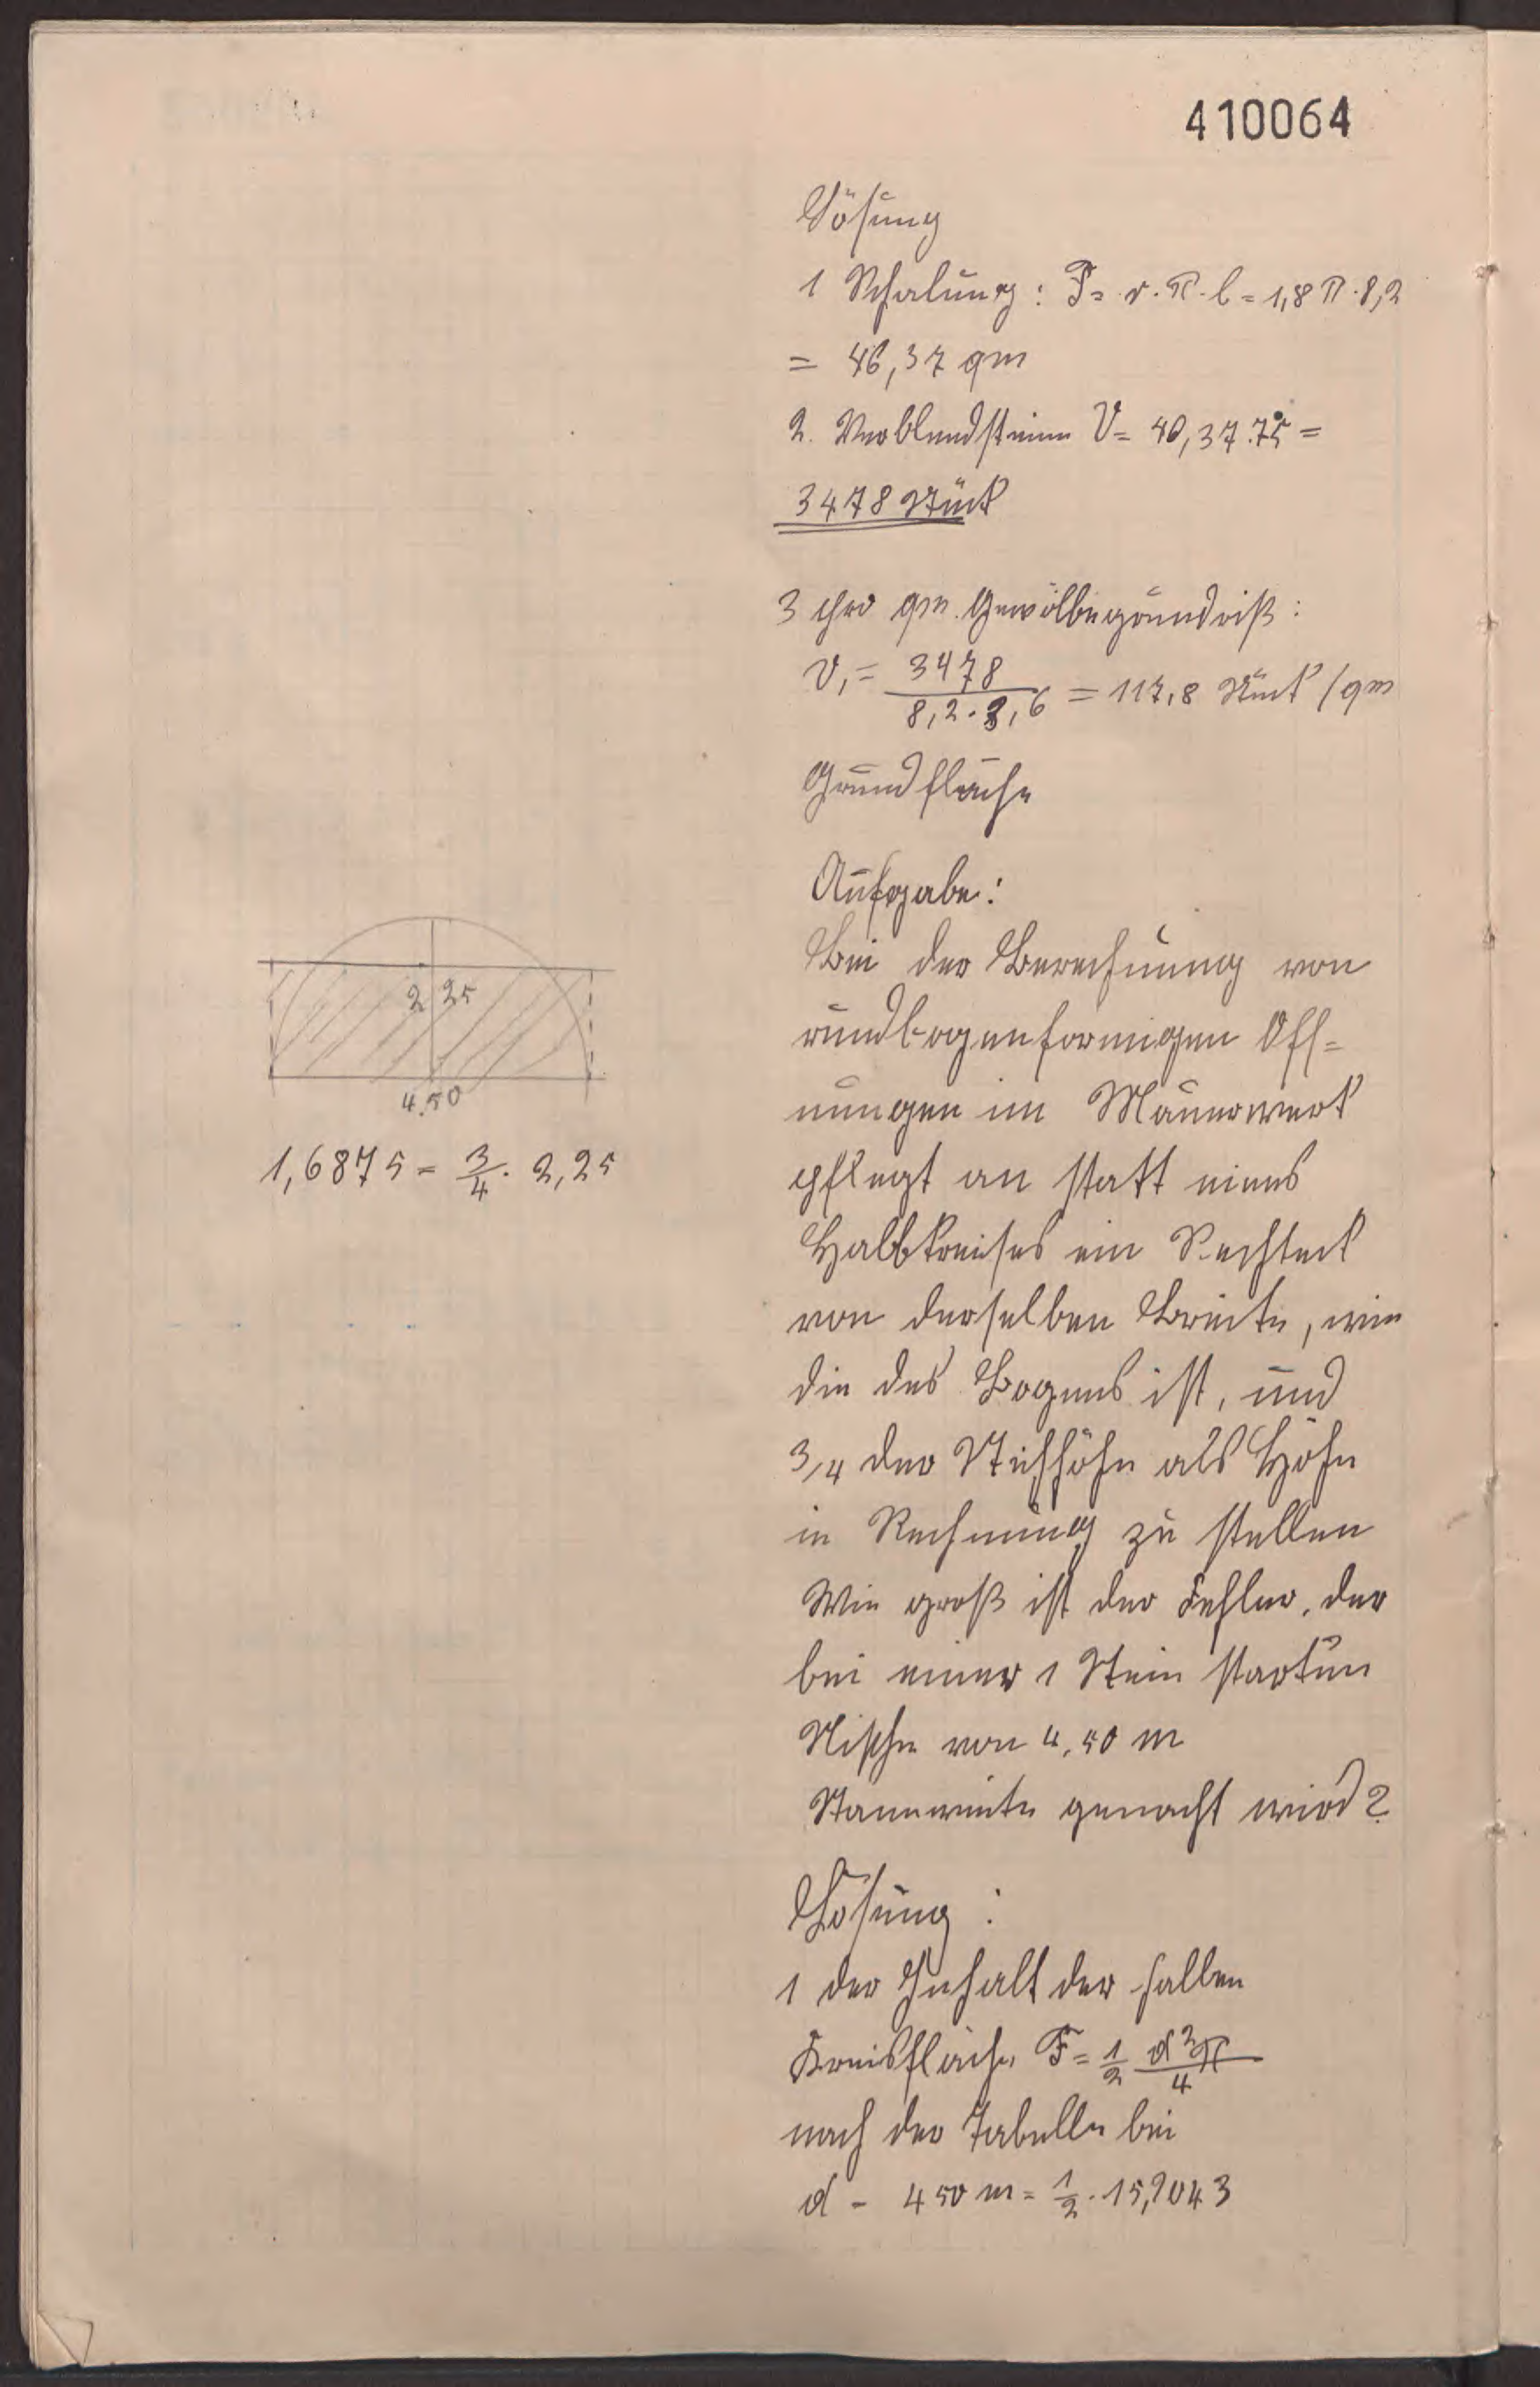 410064
Lösung
1 Schalung: F = r. π. l = 1,8 π . 8,2
= 46,37 qm
2. Verblendsteine V = 46,37.75 =
3478 Stück
3 pro qm. Gewölbegrundriß:
V₁ = 3478 / 8,2 . 3,6 = 117,8 Stück /qm
Grundfläche
Aufgabe:
Bei der Berechnung von
rundbogenformigen Öff=
nungen im Mauerwerk
pflegt an statt eines
Halbkreises ein Rechteck
von derselben Breite, wie
die des Bogens ist, und
3/4 der Stichhöhe als Höhe
in Rechnung zu stellen
Wie groß ist der Fehler, der
bei einer 1 Stein starken
Nische von 4,50 m
gemacht wird?
Lösung:
1 der Inhalt der halben
Kreisfläche F = 1/2 d²π/4
nach der Tabelle bei
d - 450 m = 1/2 . 15,9043
2 25
4.50
1,6875 = 3/4 . 2,25